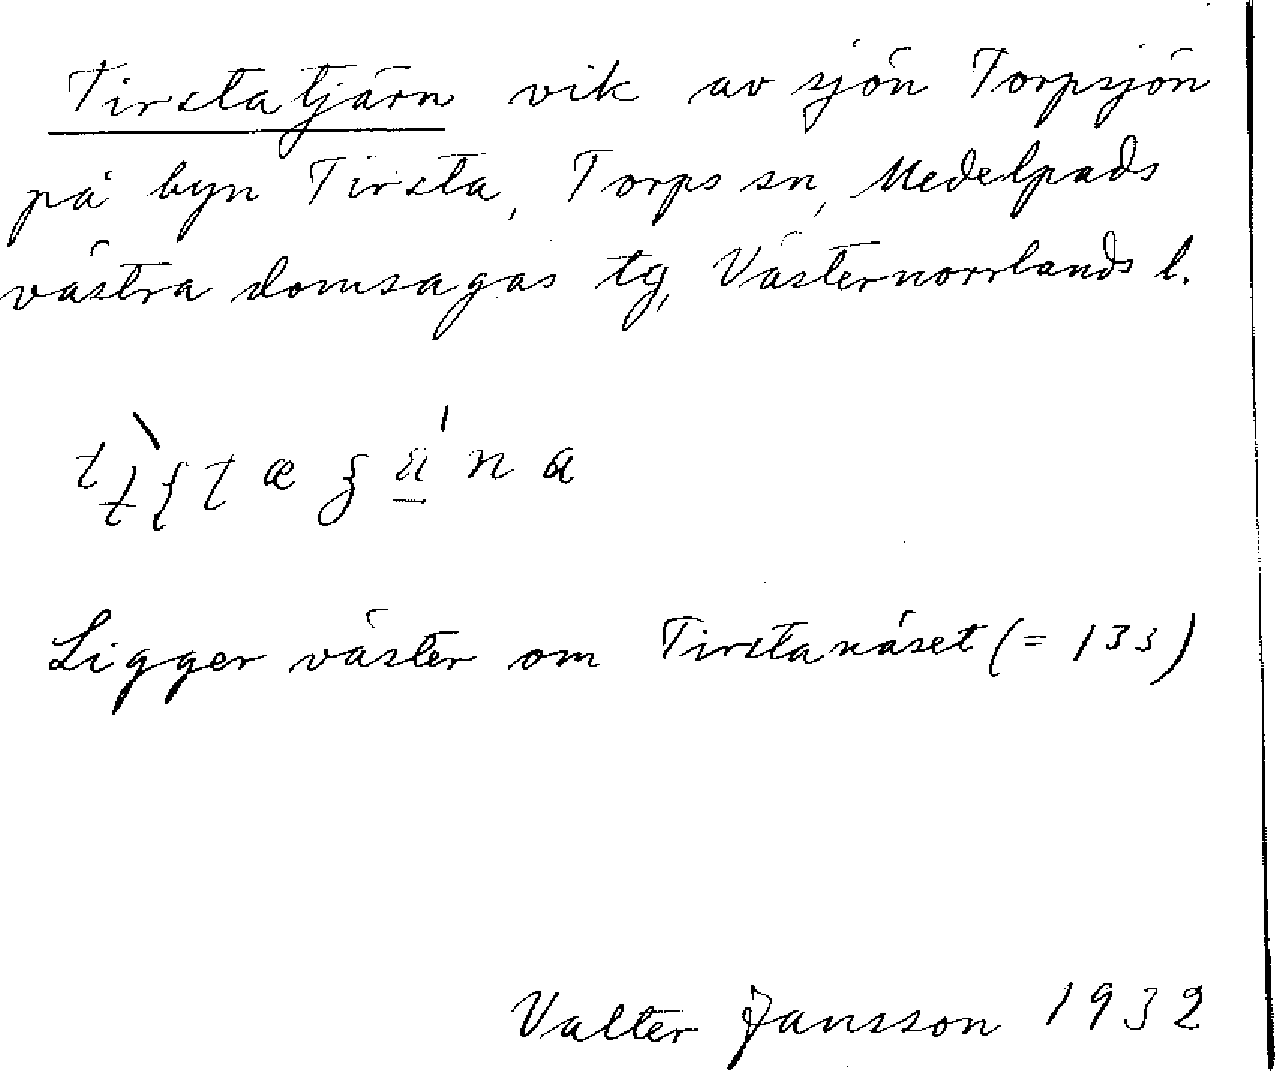 Tirstatjärn vik av sjön Torpsjön
på byn Tirsta, Torps sn, Medelpads
västra domsagas tg, Västernorrlands l.
Ligger väster om Tirstanäset (= 133)
Valter Jansson 1932